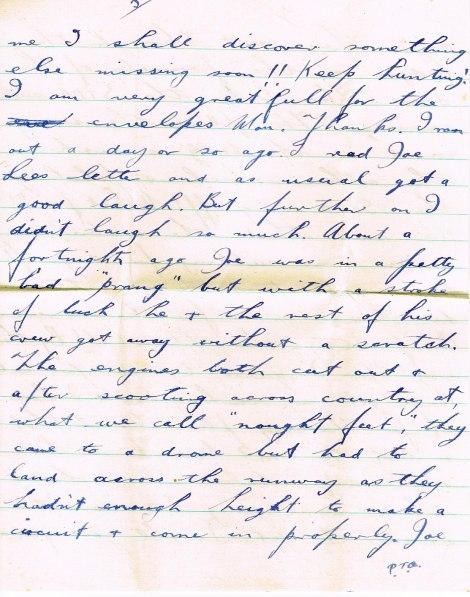 3/
me I shall discover something
else missing soon!! Keep hunting!
I am very greatfull for the
envelopes Mon. Thanks. I ran
out a day or so ago. I read Joe
Lees lette and as usual got a
good laugh. But further on I
didn't laugh so much. About a
fortnight ago Joe was in a petty
bad "prang" but with a stroke
of luck he + the rest of his
crew got away without a scratch.
The engines both cut out +
after scooting across country at,
what we call "nought feet," they
came to a drome but had to
land across the runway as they
hadn't enough height to make a
circuit + come in properly. Joe
P.T.O.